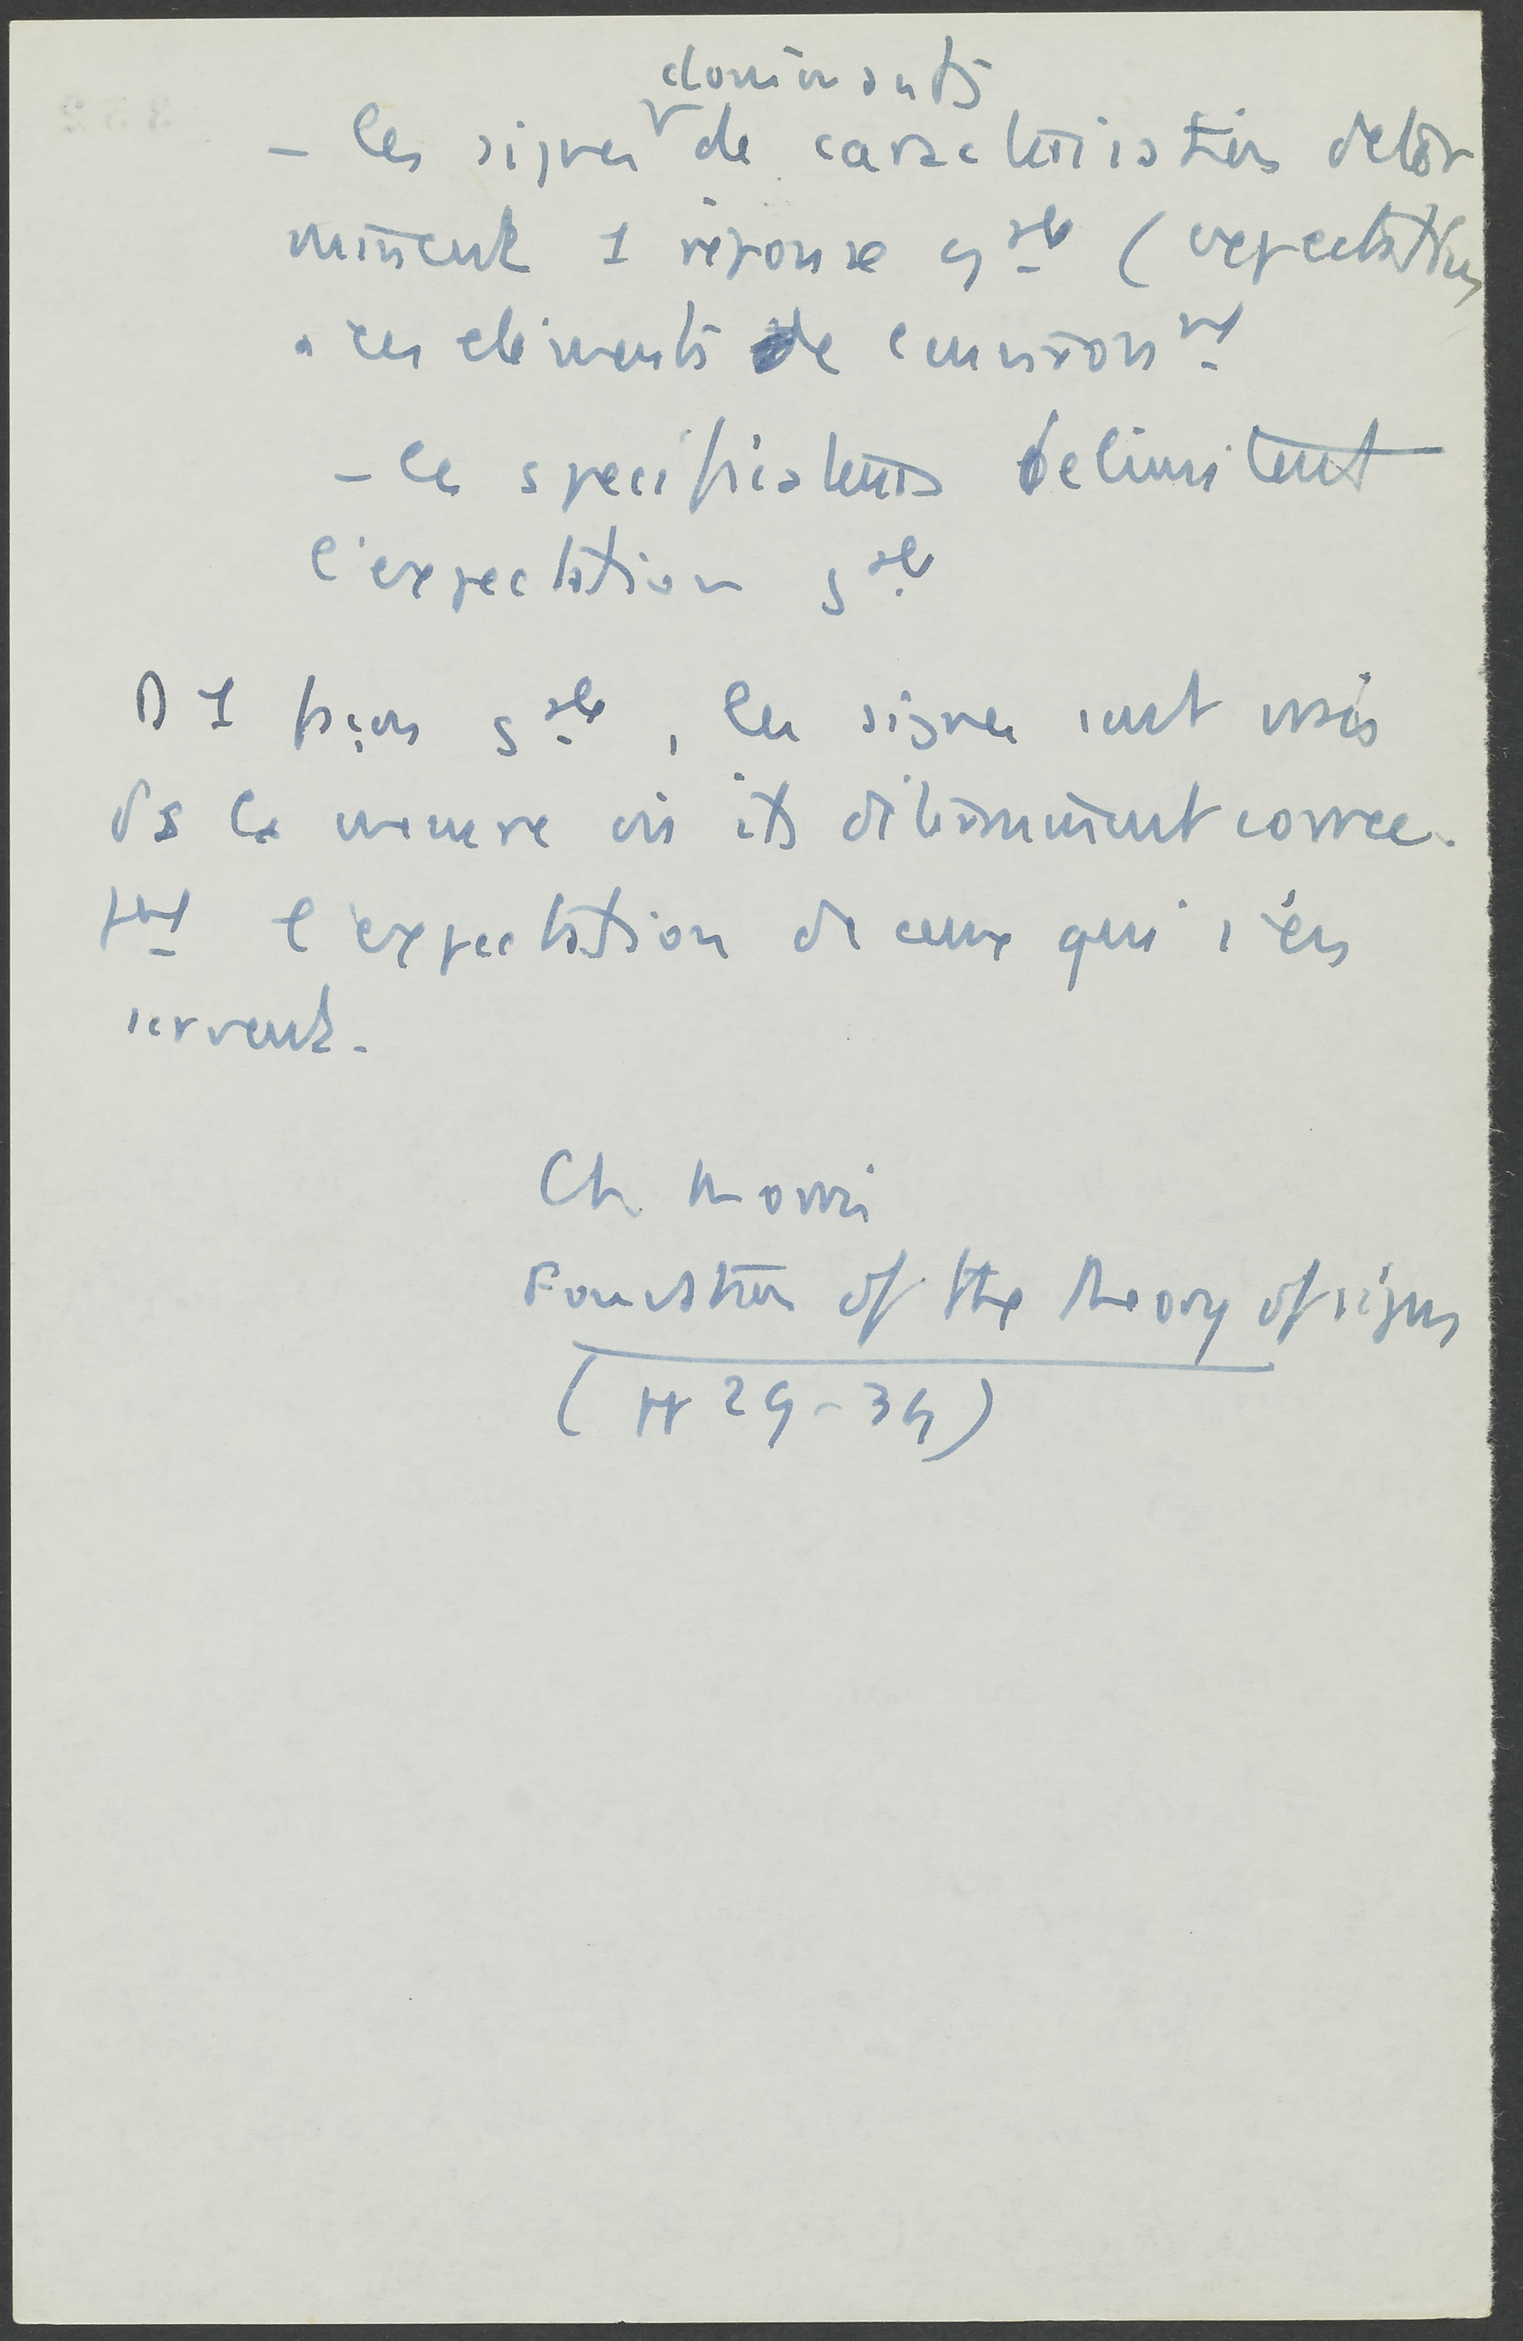 dominants
- les signes de caractérisation déter
minent 1 réponse gale (expectation
a ces elements de environnt
- les specificateurs delimitent
l'expectation gale
D 1 façon gale, les signes sont vrais
ds la mesure où ils déterminent correc-
tmt l'expectation de ceux qui s'en
servent.
Ch Morris
Foundation of the theory of signs
(pp 29-34)